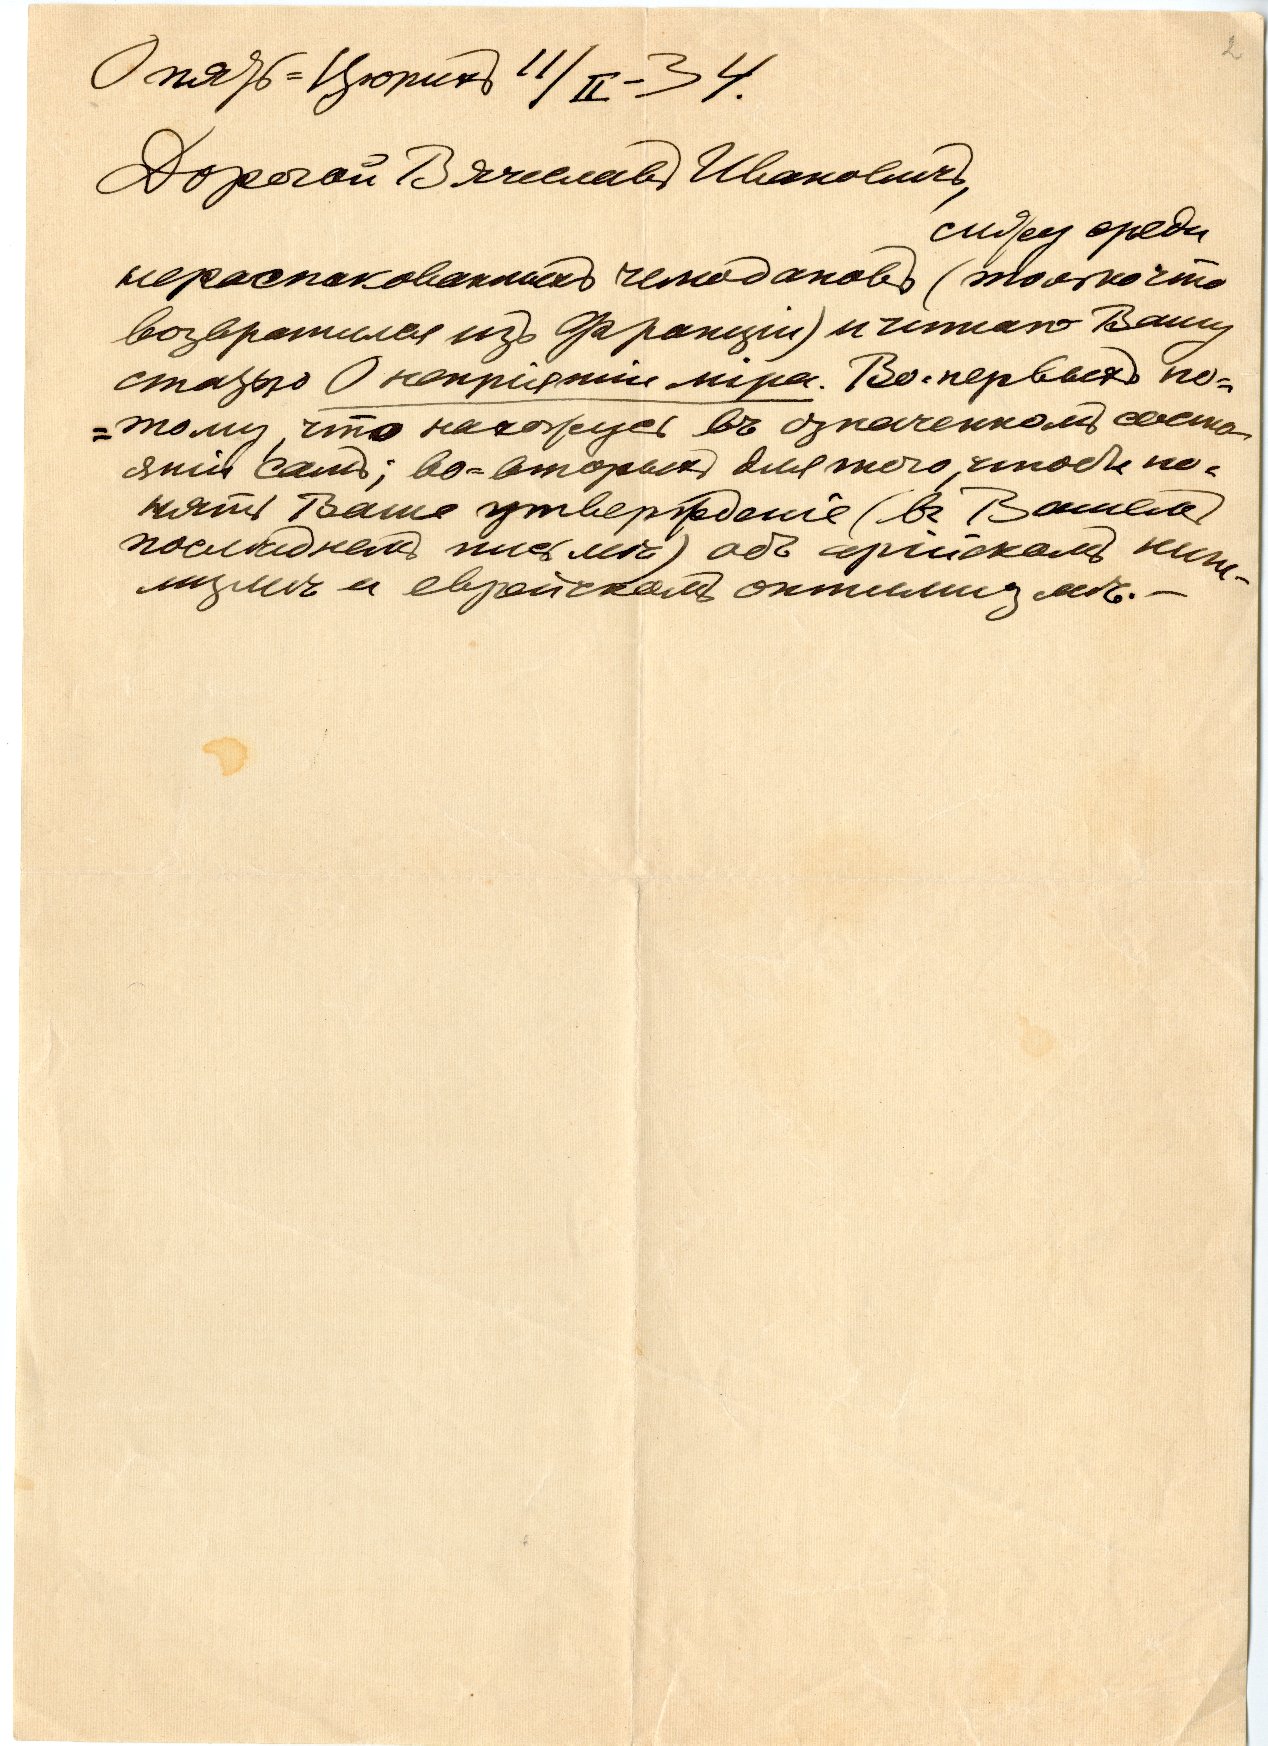 2
Опять=Цюрихъ 11/II-34.
Дорогой Вячеславъ Ивановичъ,
сижу среди
нераспакованныхъ чемодановъ (только что
возвратился изъ Франціи) и читаю Вашу
статью О непріятіи міра. Во-первыхъ по=
=тому, что нахожусь въ означенномъ состо-
яніи самъ; во=вторыхъ для того, чтобы по-
нять Ваше утвержденіе (въ Вашемъ
послѣднемъ письмѣ) объ арійскомъ ниги-
лизмѣ и еврейскомъ оптимизмѣ. —